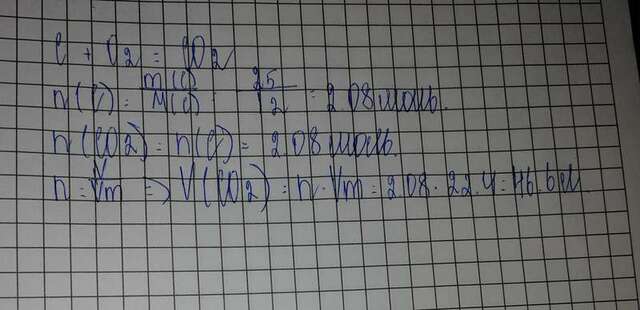 C + O2 = CO2
n(C) = m(C)/M(C) = 25/12 = 2.08 моль.
n(CO2) = n(C) = 2.08 моль.
n = V/Vm => V(CO2) = n · Vm = 2.08 · 22.4 = 46.6 л